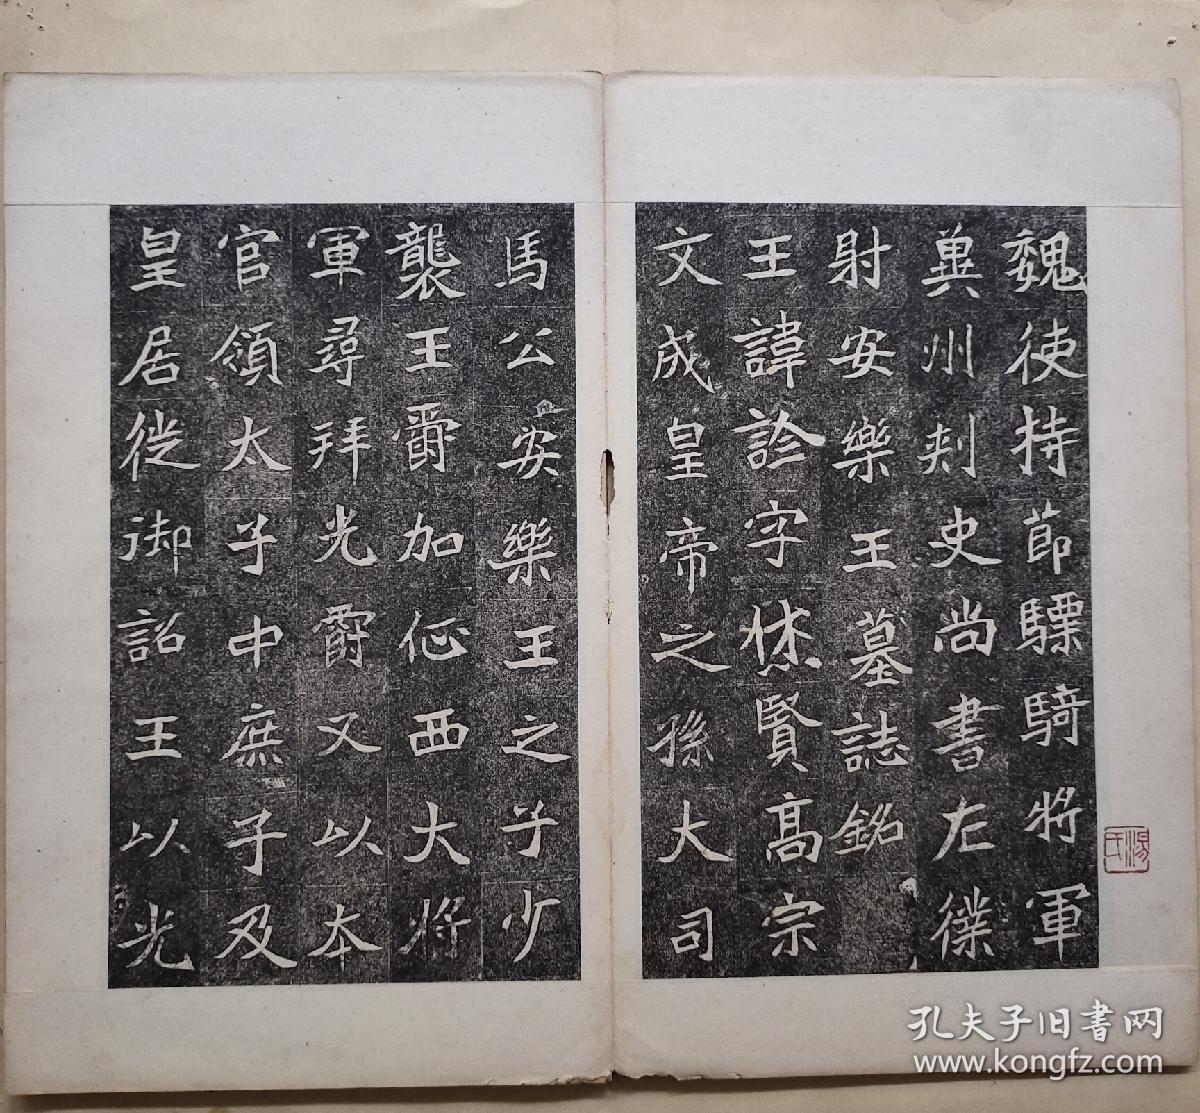 魏使持節驃騎將軍
冀州刾史尚書左僕
射安樂王墓誌銘
王諱詮字休賢高宗
文成皇帝之孫大司
馬公安樂王之子少
襲王爵加征西大將
軍尋拜光爵又以本
官領太子中庶子及
皇居徙御詔王以光
湯氏
孔夫子旧書网
www.kongfz.com